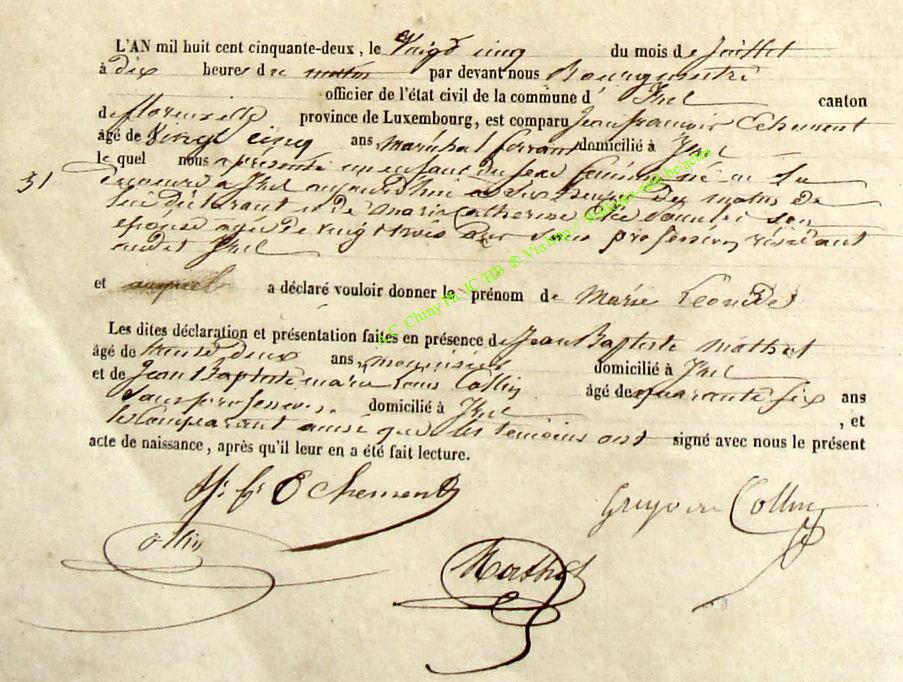 L'AN mil huit cent cinquante-deux, le Vingt cinq du mois de Juillet
à dix heures du matin par devant nous Bourgmestre
officier de l'état civil de la commune d' Izel canton
de florenville province de Luxembourg, est comparu Jean françois Echement
âgé de Vingt cinq ans, maréchal ferrant domicilié à Izel
le quel nous a présenté un enfant du sexe féminin né en Sa
31
demeure à Izel aujourd'hui à six heures du matin de
lui déclarant et de marie Catherine son
épouse agée de vingt trois ans sans profession résidant
audit Izel
et auquel a déclaré vouloir donner le prénom de Marie Léonide
Les dites déclaration et présentation faites en présence de Jean Baptiste Mathet
âgé de trente deux ans, menuisier domicilié à Izel
et de Jean Baptiste marie Louis Collin âgé de quarante six ans
Sans profession. domicilié à Izel , et
le Comparant ainsi que les temoins ont signé avec nous le présent
acte de naissance, après qu'il leur en a été fait lecture.
Jn. fs. Echement
Gregoire Collin
Collin
Mathet